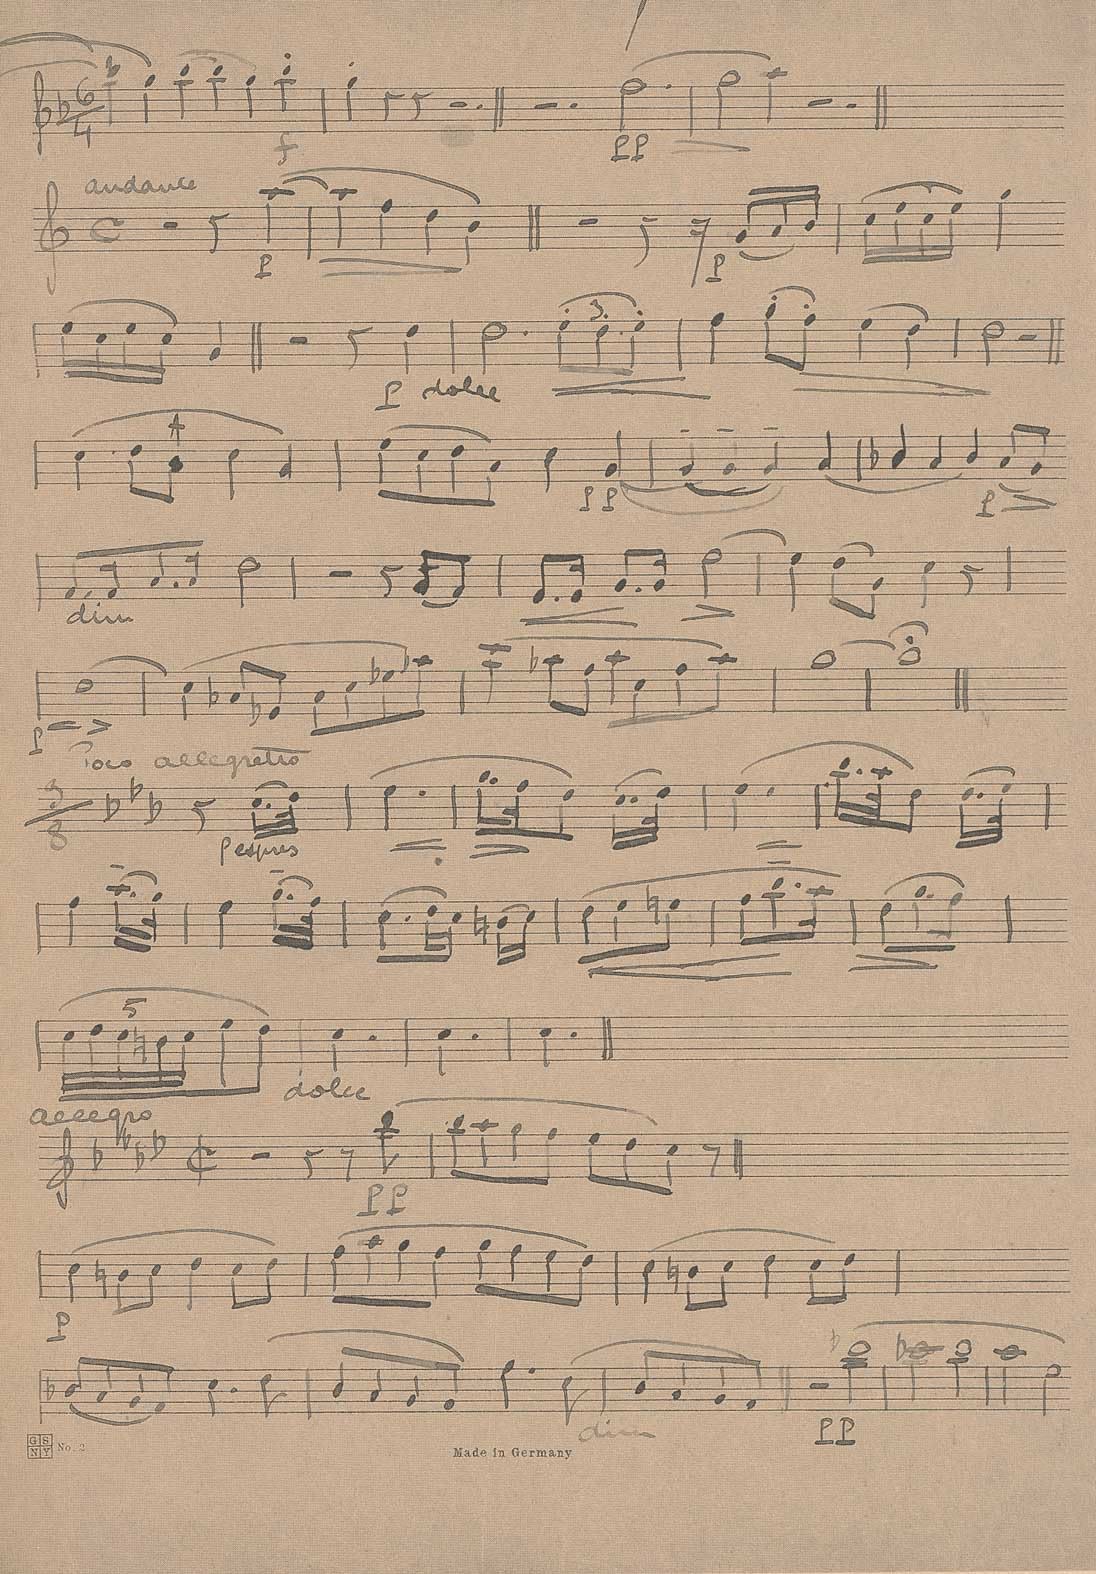 6
4
f
pp
andante
p
p
3.
p dolce
pp
p
dim
p
Poco allegretto
3
8
p espres
5
dolce
allegro
pp
p
dim
pp
GS
NY No. 2
Made in Germany